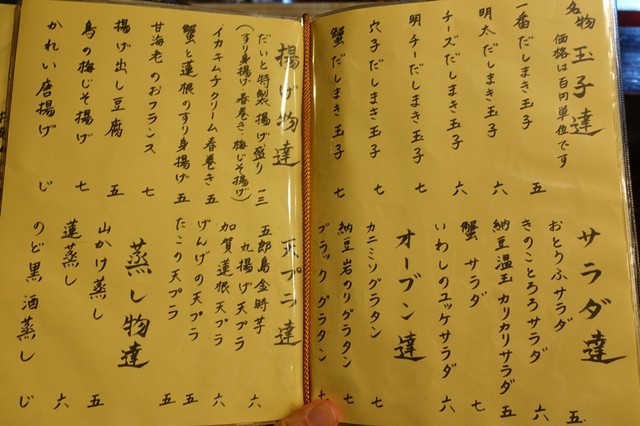 名物 玉子達
価格は百円単位です
一番だしまき玉子 五
明太だしまき玉子 六
チーズだしまき玉子 六
明チーだしまき玉子 七
穴子だしまき玉子 七
蟹だしまき玉子 七
サラダ達
おとうふサラダ 五
きのことろろサラダ 六
納豆温玉カリカリサラダ 五
蟹サラダ 七
いわしのユッケサラダ 六
オーブン達
カニミソグラタン 七
納豆岩のりグラタン 七
ブラックグラタン 七
揚げ物達
だいと特製揚げ盛り 一三
(すり身揚げ・春巻き・梅じそ揚げ)
イカキムチクリーム春巻き 五
蟹と蓮根のすり身揚げ 五
甘海老のおフランス 七
揚げ出し豆腐 五
鳥の梅じそ揚げ 七
かれい唐揚げ じ
天プラ達
五郎島金時芋
丸揚げ天プラ 六
加賀蓮根天プラ 六
げんげの天プラ 五
たこの天プラ 五
蒸し物達
山かけ蒸し 五
蓮蒸し 六
のど黒酒蒸し じ